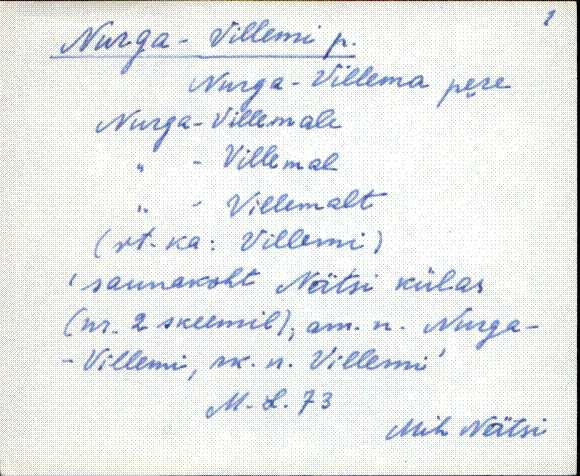 1
Nurga-Villemi p.
Nurga-Villema pere
Nurga-Villemale
" - Villemal
" - Villemalt
(vt. ka: Villemi)
'saunakoht Nätsi külas
(nr. 2 skeemil), am. n. Nurga-
-Villemi, rk. n. Villemi'
M. L. 73
Mih Nätsi